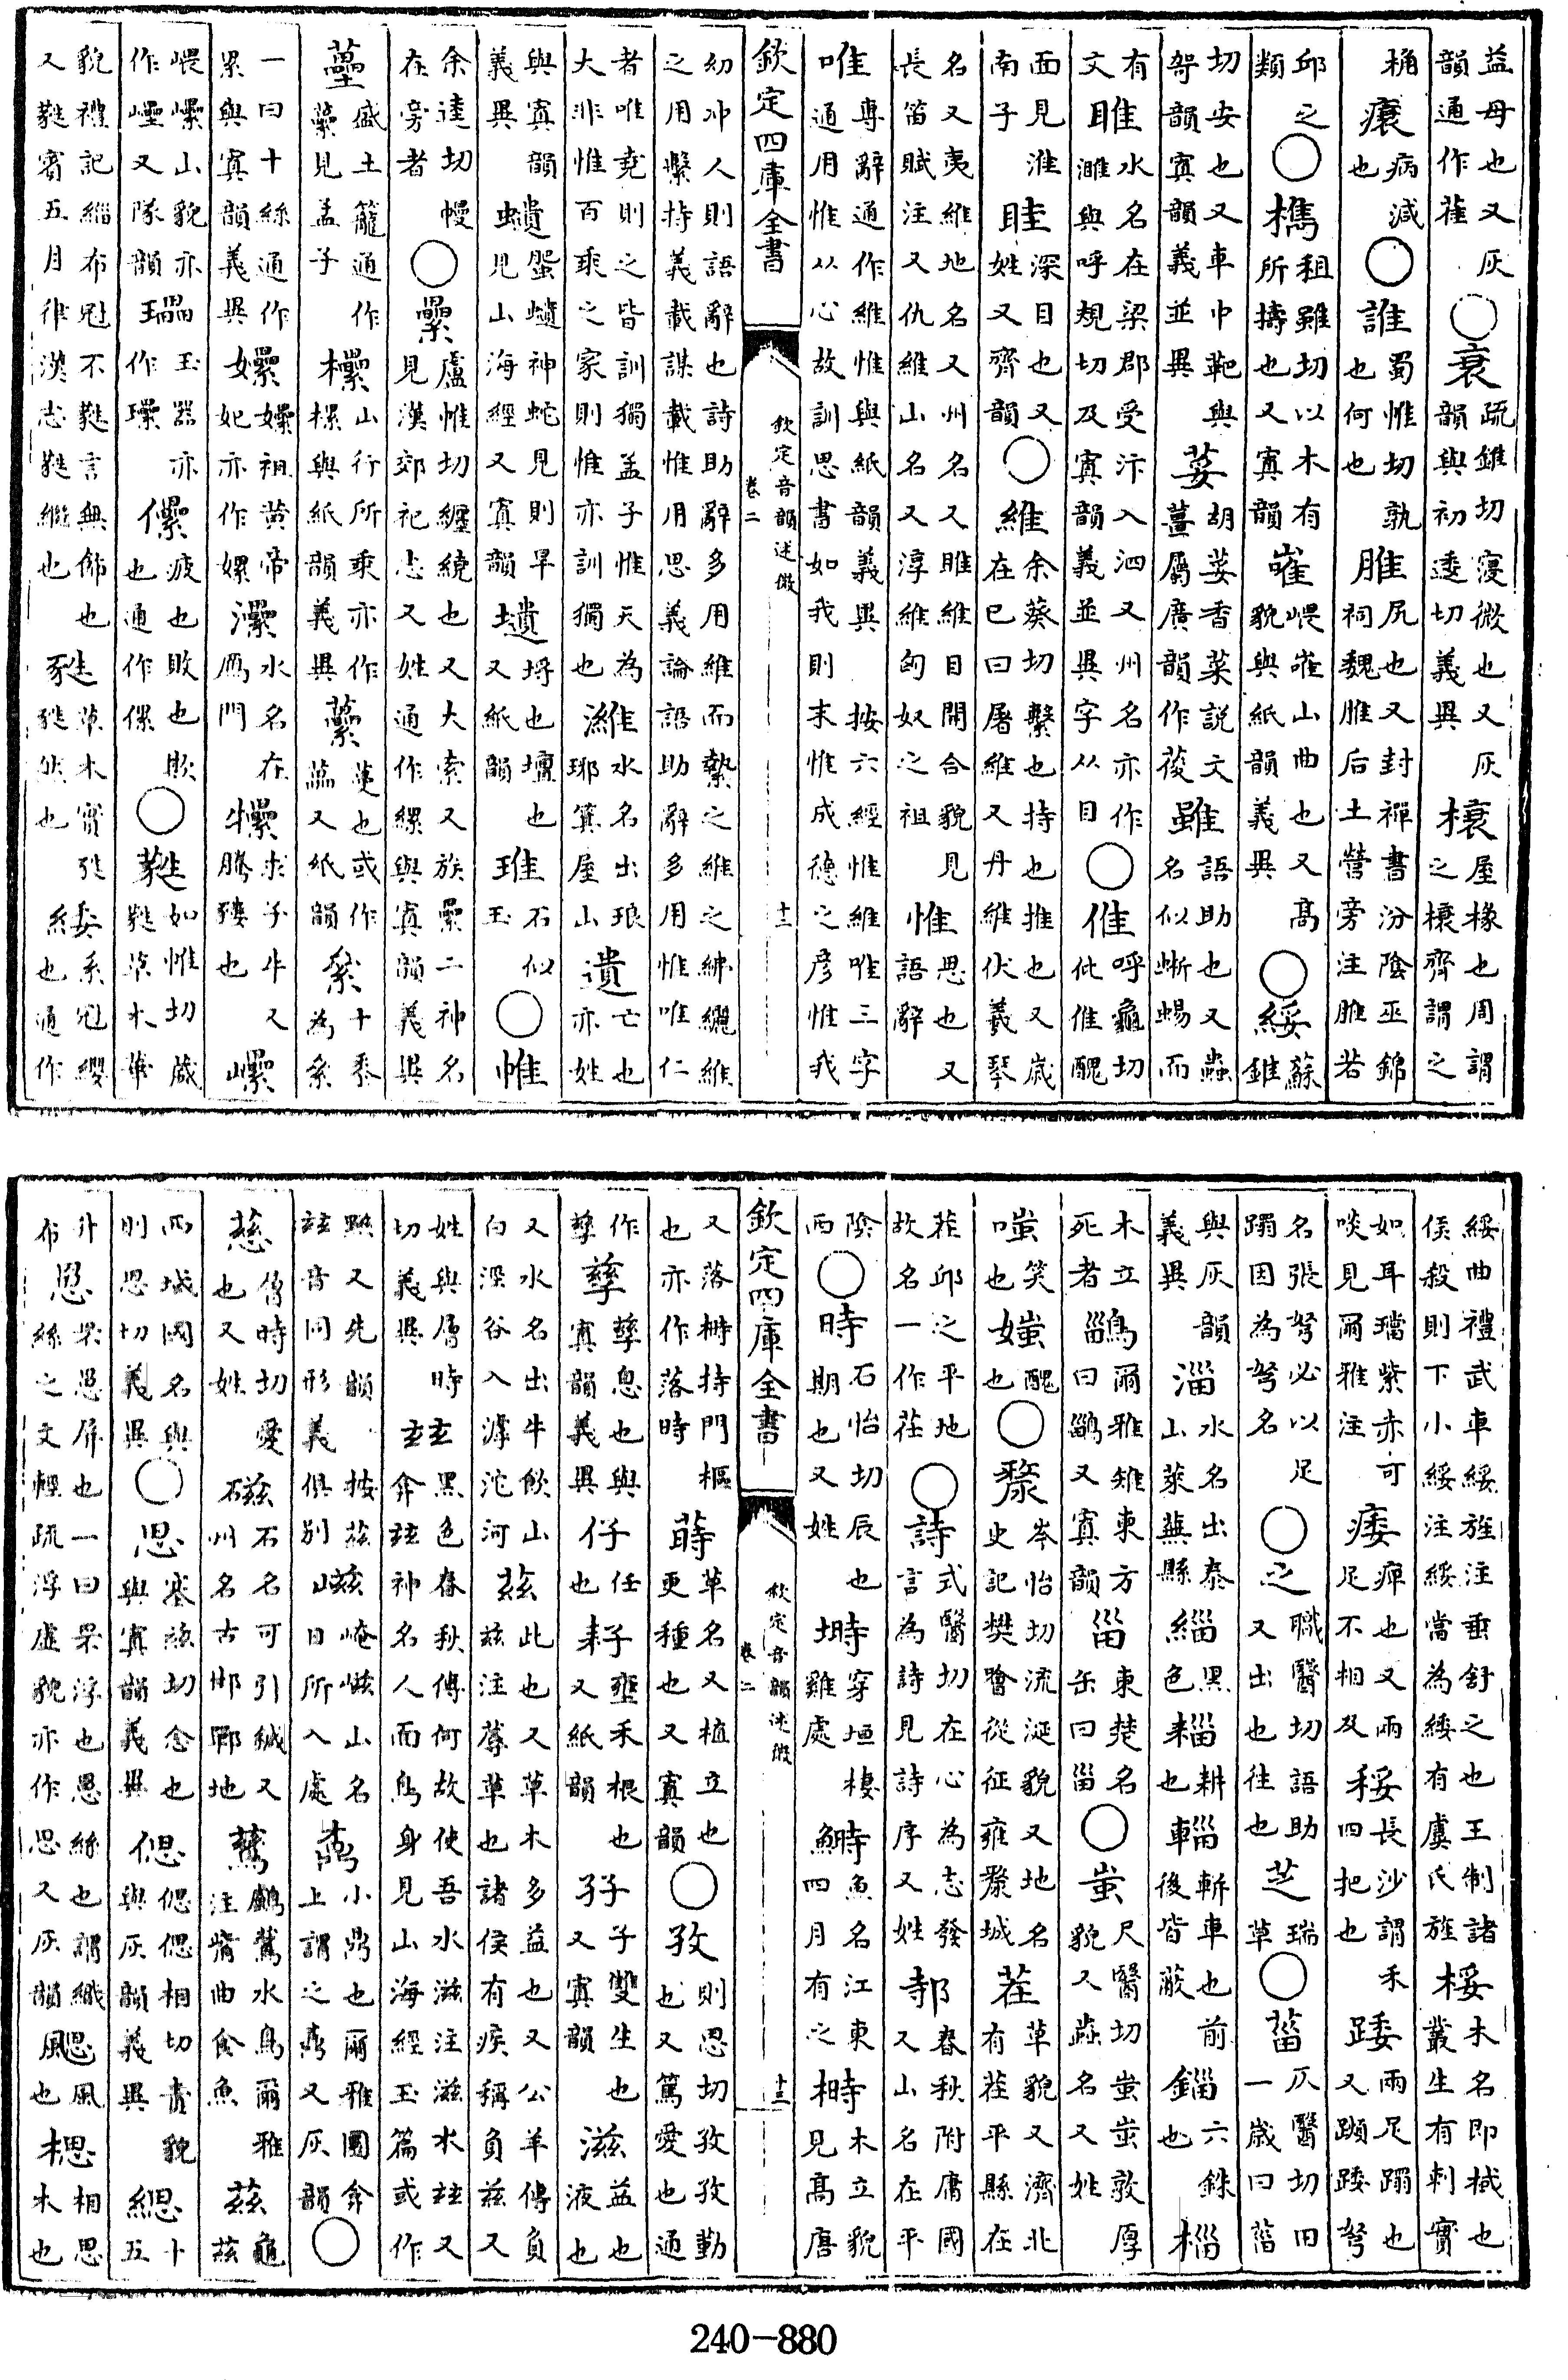 益母也又灰韻通作蓷○衰疏錐切寖微也又灰韻與初逶切義異榱屋橡也周謂之榱齊謂之
桷病減也○誰蜀惟切孰也何也脽尻也又封禪書汾陰巫錦祠魏脽后土營旁注脽若
邱之類○檇租雖切以木有所擣也又寘韻嶉㟪嶉山曲也又高貌與紙韻義異○綏蘇錐
切安也又車巾靶與帤韻寘韻義並異荽胡荽香菜説文薑屬廣韻作葰雖語助也又蟲名似蜥蜴而
有文睢水名在梁郡受汴入泗又州名亦作濉與呼規切及寘韻義並異字从目○倠呼龜切仳倠醜
面見淮南子眭深目也又姓又齊韻○維余葵切繫也持也推也又歲在巳曰屠維又丹維伏羲琴
名又夷維地名又州名又睢維目開合貌見長笛賦注又仇維山名又淳維匈奴之祖惟思也又語辭
唯專辭通作維惟與紙韻義異按六經惟維唯三字通用惟从心故訓思書如我則末惟成德之彦惟我
欽定四庫全書
欽定音韻述微
卷二
十二
幼沖人則語辭也詩助辭多用維而縶之維之紼纚維之用繫持義載謀載惟用思義論語助辭多用惟唯仁
者唯堯則之皆訓獨孟子惟天為大非惟百乘之家則惟亦訓獨也濰水名出琅琊箕屋山遺亡也亦姓
與寘韻義異𧔥蛩𧔥神蛇見則旱見山海經又寘韻壝埓也壇也又紙韻琟石似玉○帷
余逵切幔在旁者○纍盧惟切纏繞也又大索又族纍二神名見漢郊祀志又姓通作縲與寘韻義異
蘲盛土籠通作虆見孟子欙山行所乘亦作樏與紙韻義異虆蔓也或作藟又紙韻絫十黍為絫
一曰十絲通作累與寘韻義異嫘嫘祖黄帝妃亦作嫘灅水名在鴈門㹎求子牛又騰㹎也㠥
㟪㠥山貌亦作㠥又隊韻瓃玉器亦作璅儽疲也敗也欺也通作傫○蕤如惟切葳蕤草木華
貌禮記緇布冠不蕤言無飾也又蕤賔五月律漢志蕤繼也甤草木實甤甤然也緌系冠纓也通作
綏曲禮武車綏旌注垂舒之也王制諸侯殺則下小綏注綏當為緌有虞氏旌桵木名即棫也叢生有刺實
如耳璫紫赤可啖見爾雅注痿痺也又兩足不相及䅗長沙謂禾四把也踒兩足蹋也又蹞踒弩
名張弩必以足蹋因為弩名○之職醫切語助又出也往也芝瑞草○菑仄醫切田一歲曰菑
與灰韻義異淄水名出泰山萊蕪縣緇黑色耕也輜軿車也前後皆蔽錙六銖也椔
木立死者鶅爾雅雉東方曰鶅又寘韻甾東楚名缶曰甾○蚩尺醫切蚩蚩敦厚貌又蟲名又姓
嗤笑也媸醜也○漦岑怡切流涎貌又地名史記樊噲從征雍漦城茬草貌又濟北有茬平縣在
茬邱之平地故名一作茌○詩式醫切在心為志發言為詩見詩序又姓邿春秋附庸國又山名在平
陰西○時石怡切辰也期也又姓塒穿垣棲雞處鰣魚名江東四月有之榯木立貌見高唐
欽定四庫全書
欽定音韻述微
卷二
十三
又落榯持門樞也亦作落時蒔草名又植立也更種也又寘韻○孜則思切孜孜勤也又篤愛也通
作孳孳孳息也與寘韻義異仔任也耔壅禾根也又紙韻孖子雙生也又寘韻滋益也液也
又水名出牛飲山白深谷入滹沱河茲此也又草木多益也又公羊傳負茲注蓐草也諸侯有疾稱負茲又
姓與層時切義異玆黑色春秋傳何故使吾水滋注滋水玆又弅玆神名人面鳥身見山海經玉篇或作
黰又先韻按茲玆音同形義俱別嵫崦嵫山名日所入處鼒小鼎也爾雅圜弇上謂之鼒又灰韻○
慈層時切愛也又姓磁石名可引鍼又州名古邯鄲地鷀鸕鷀水鳥爾雅注觜曲食魚茲龜茲
西域國名與則思切義異○思塞茲切念也與寘韻義異偲偲偲相切責貌與灰韻義異緦十五
升布罳罘罳屏也一曰罘浮也罳絲也謂織絲之文輕疏浮虚貌亦作思又灰韻颸風也楒相思木也
240-880